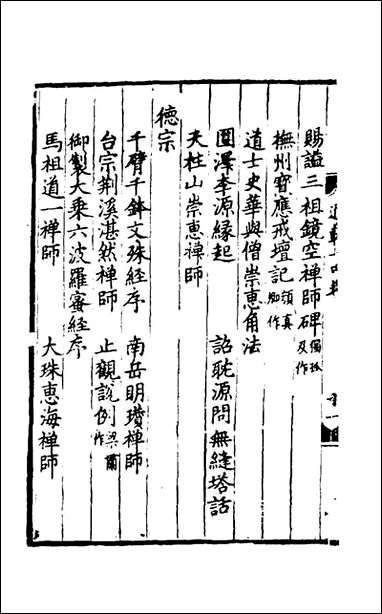 賜謚三祖鏡空禪師碑獨孤及作
撫州寶應戒壇記顏真卿作
道士史華與僧崇惠角法
圓澤李源緣起　詔耽源問無縫塔話
天柱山崇惠禪師
德宗
千臂千鉢文殊經序　南岳明瓚禪師
台宗荆溪湛然禪師　止觀說例梁肅作
御製大乘六波羅蜜經序
馬祖道一禪師　大珠惠海禪師